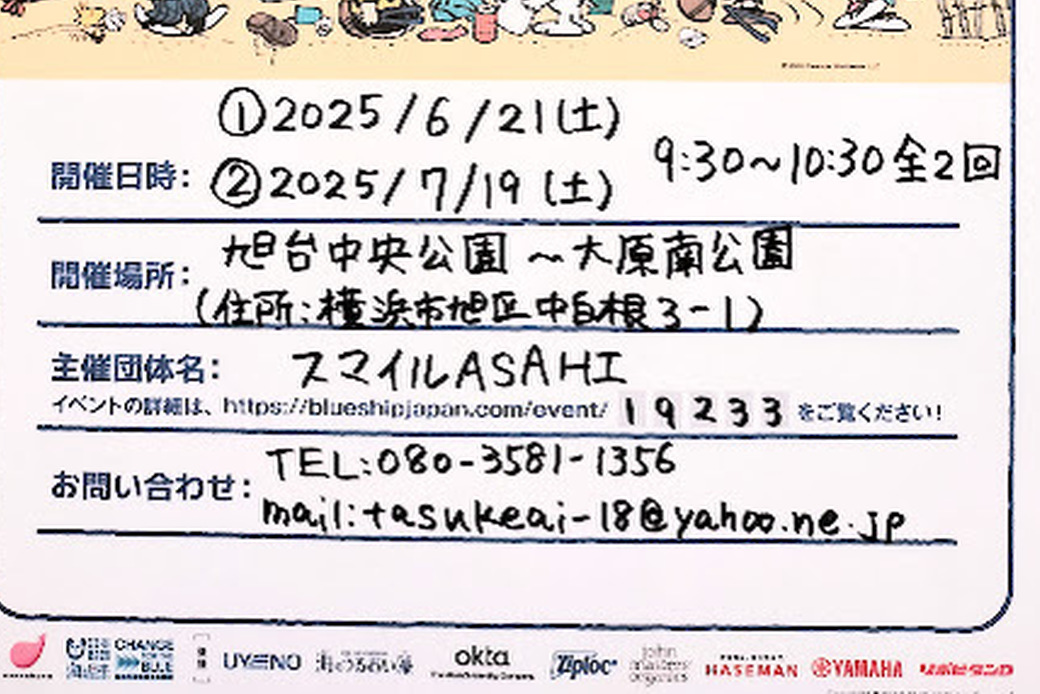 ①2025/6/21(土)
開催日時: ②2025/7/19(土) 9:30~10:30全2回
開催場所: 旭台中央公園 ~大原南公園
(住所:横浜市旭区中白根3-1)
主催団体名: スマイルASAHI
イベントの詳細は、https://blueshipjapan.com/event/ 19233 をご覧ください!
お問い合わせ: TEL:080-3581-1356
mail:tasukeai-18@yahoo.ne.jp
CHANGE FOR THE BLUE UYENO 海のうるおい藻 okta Ziploc john masters organics HASEMAN YAMAHA リポビタンD